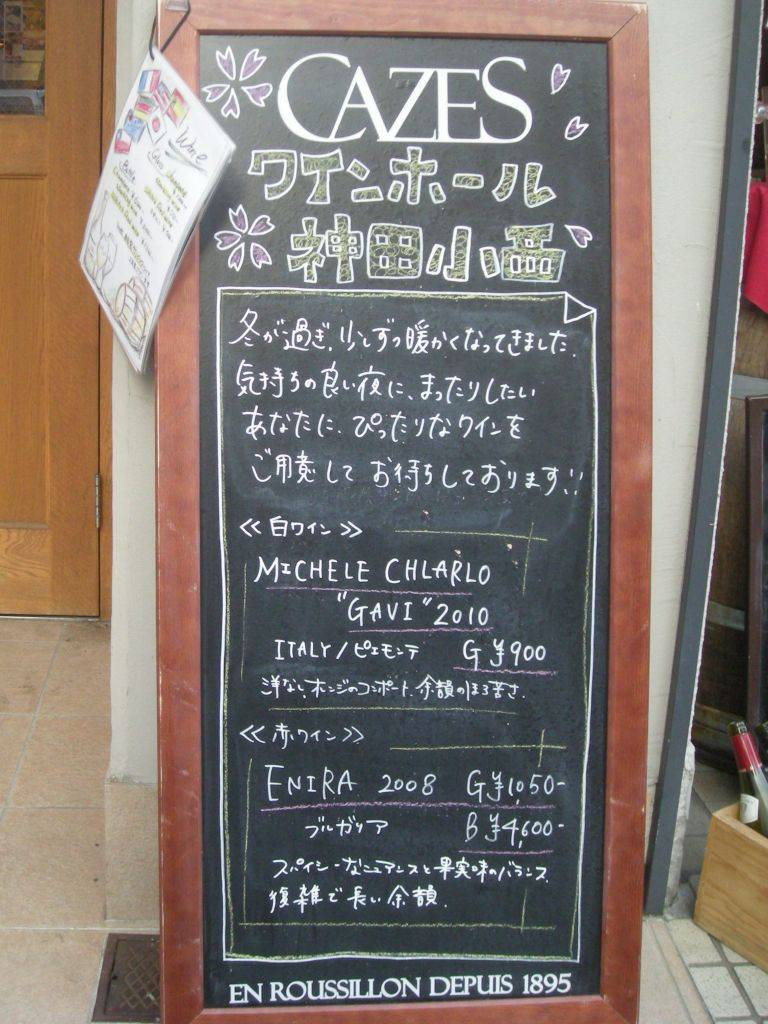 CAZES
ワインホール
神田小西
冬が過ぎ、少しずつ暖かくなってきました。
気持ちの良い夜に、まったりしたい
あなたに、ぴったりなワインを
ご用意して お待ちしております!!
≪白ワイン≫
MICHELE CHLARLO
"GAVI" 2010
ITALY/ピエモンテ G ¥900
洋なし、オレンジのコンポート、余韻のほろ苦さ。
≪赤ワイン≫
ENIRA 2008 G ¥1050-
ブルガリア B ¥4,600-
スパイシーなニュアンスと果実味のバランス
複雑で長い余韻.
EN ROUSSILLON DEPUIS 1895
Wine